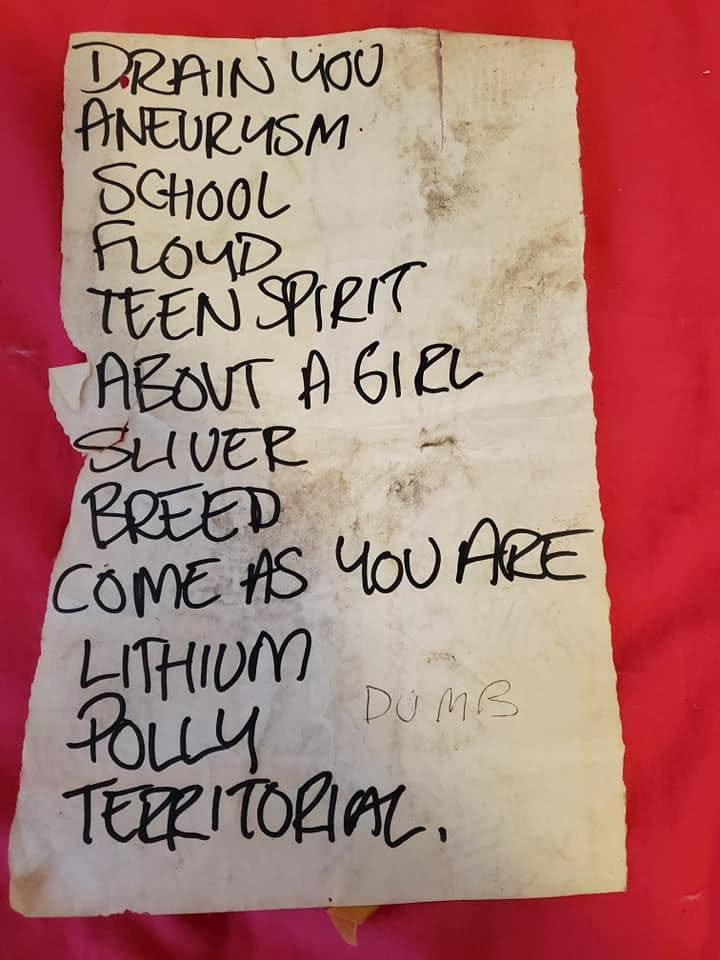 DRAIN YOU
ANEURYSM
SCHOOL
FLOYD
TEEN SPIRIT
ABOUT A GIRL
SLIVER
BREED
COME AS YOU ARE
LITHIUM
POLLY
DUMB
TERRITORIAL.